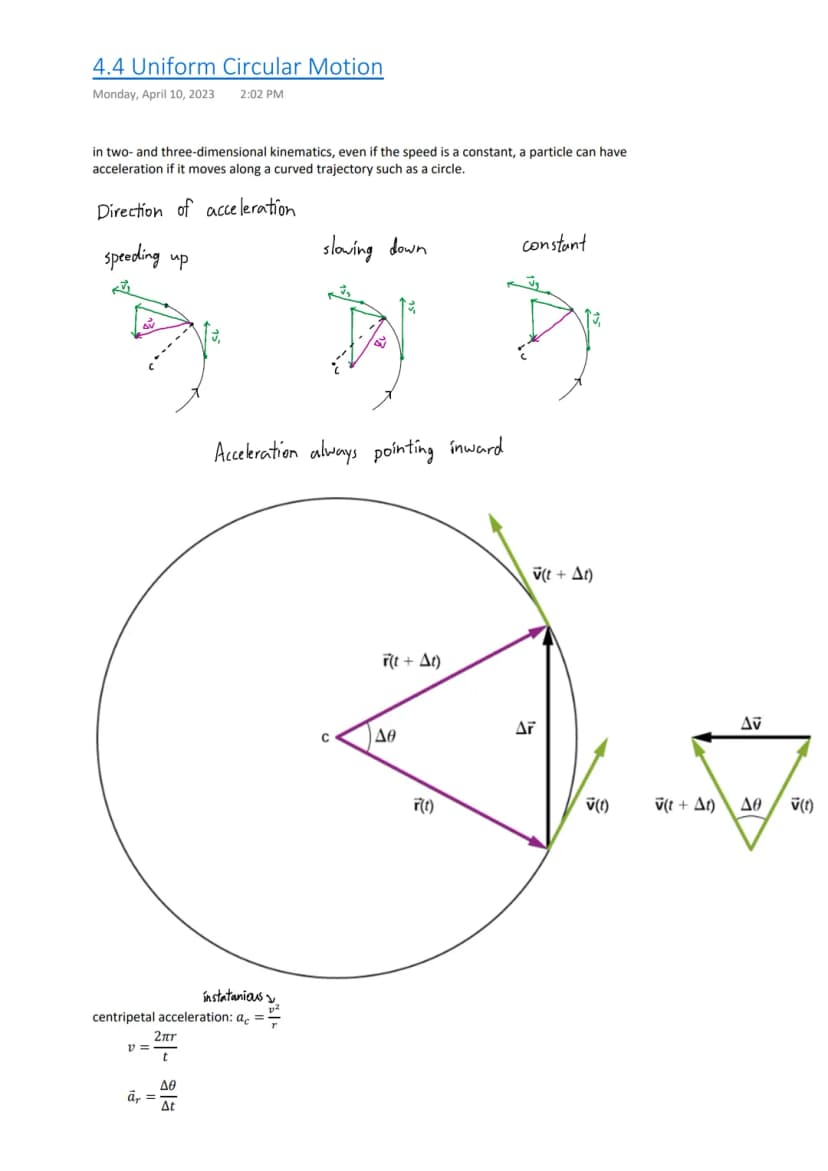 4.4 Uniform Circular Motion
Monday, April 10, 2023 2:02 PM
in two- and three-dimensional kinematics, even if the speed is a constant, a particle can have
acceleration if it moves along a curved trajectory such as a circle.
Direction of acceleration
speeding up
slowing down
constant
v⃗₂
Δv⃗
v⃗₁
c
v⃗₂
v⃗₁
Δv⃗
c
v⃗₂
v⃗₁
c
Acceleration always pointing inward
v⃗(t + Δt)
r⃗(t + Δt)
C
Δθ
Δr⃗
r⃗(t)
v⃗(t)
Δv⃗
v⃗(t + Δt)
Δθ
v⃗(t)
instatanious
centripetal acceleration: a_c = v²/r
v = 2πr/t
a⃗_r = Δθ/Δt